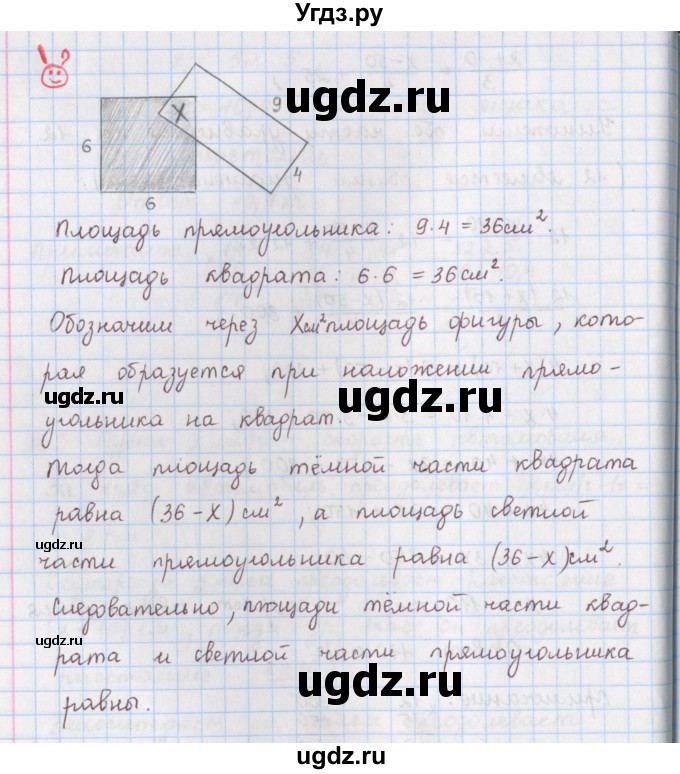 Угдз.ру
ugdz.ru
X
9
6
4
6
ugdz.ru
Площадь прямоугольника: 9·4 = 36см².
Площадь квадрата: 6·6 = 36см².
Обозначим через Xсм² площадь фигуры, кото-
рая образуется при наложении прямо-
ugdz.ru
ugdz.ru
угольника на квадрат.
Тогда площадь тёмной части квадрата
равна (36-X)см², а площадь светлой
ugdz.ru
ugdz.ru
части прямоугольника равна (36-X)см².
Следовательно, площади тёмной части квад-
ugdz.ru
рата и светлой части прямоугольника
ugdz.ru
равны.
ugdz.ru